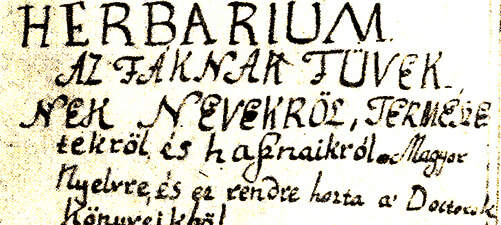 HERBARIUM
AZ FÁKNAK FÜVEK
NEK NEVEKRÖL, TERMÉSZE
tekröl és haſznaikról. Magyar
Nyelvre, és ez rendre hozta a' Doctorok
könyveikböl